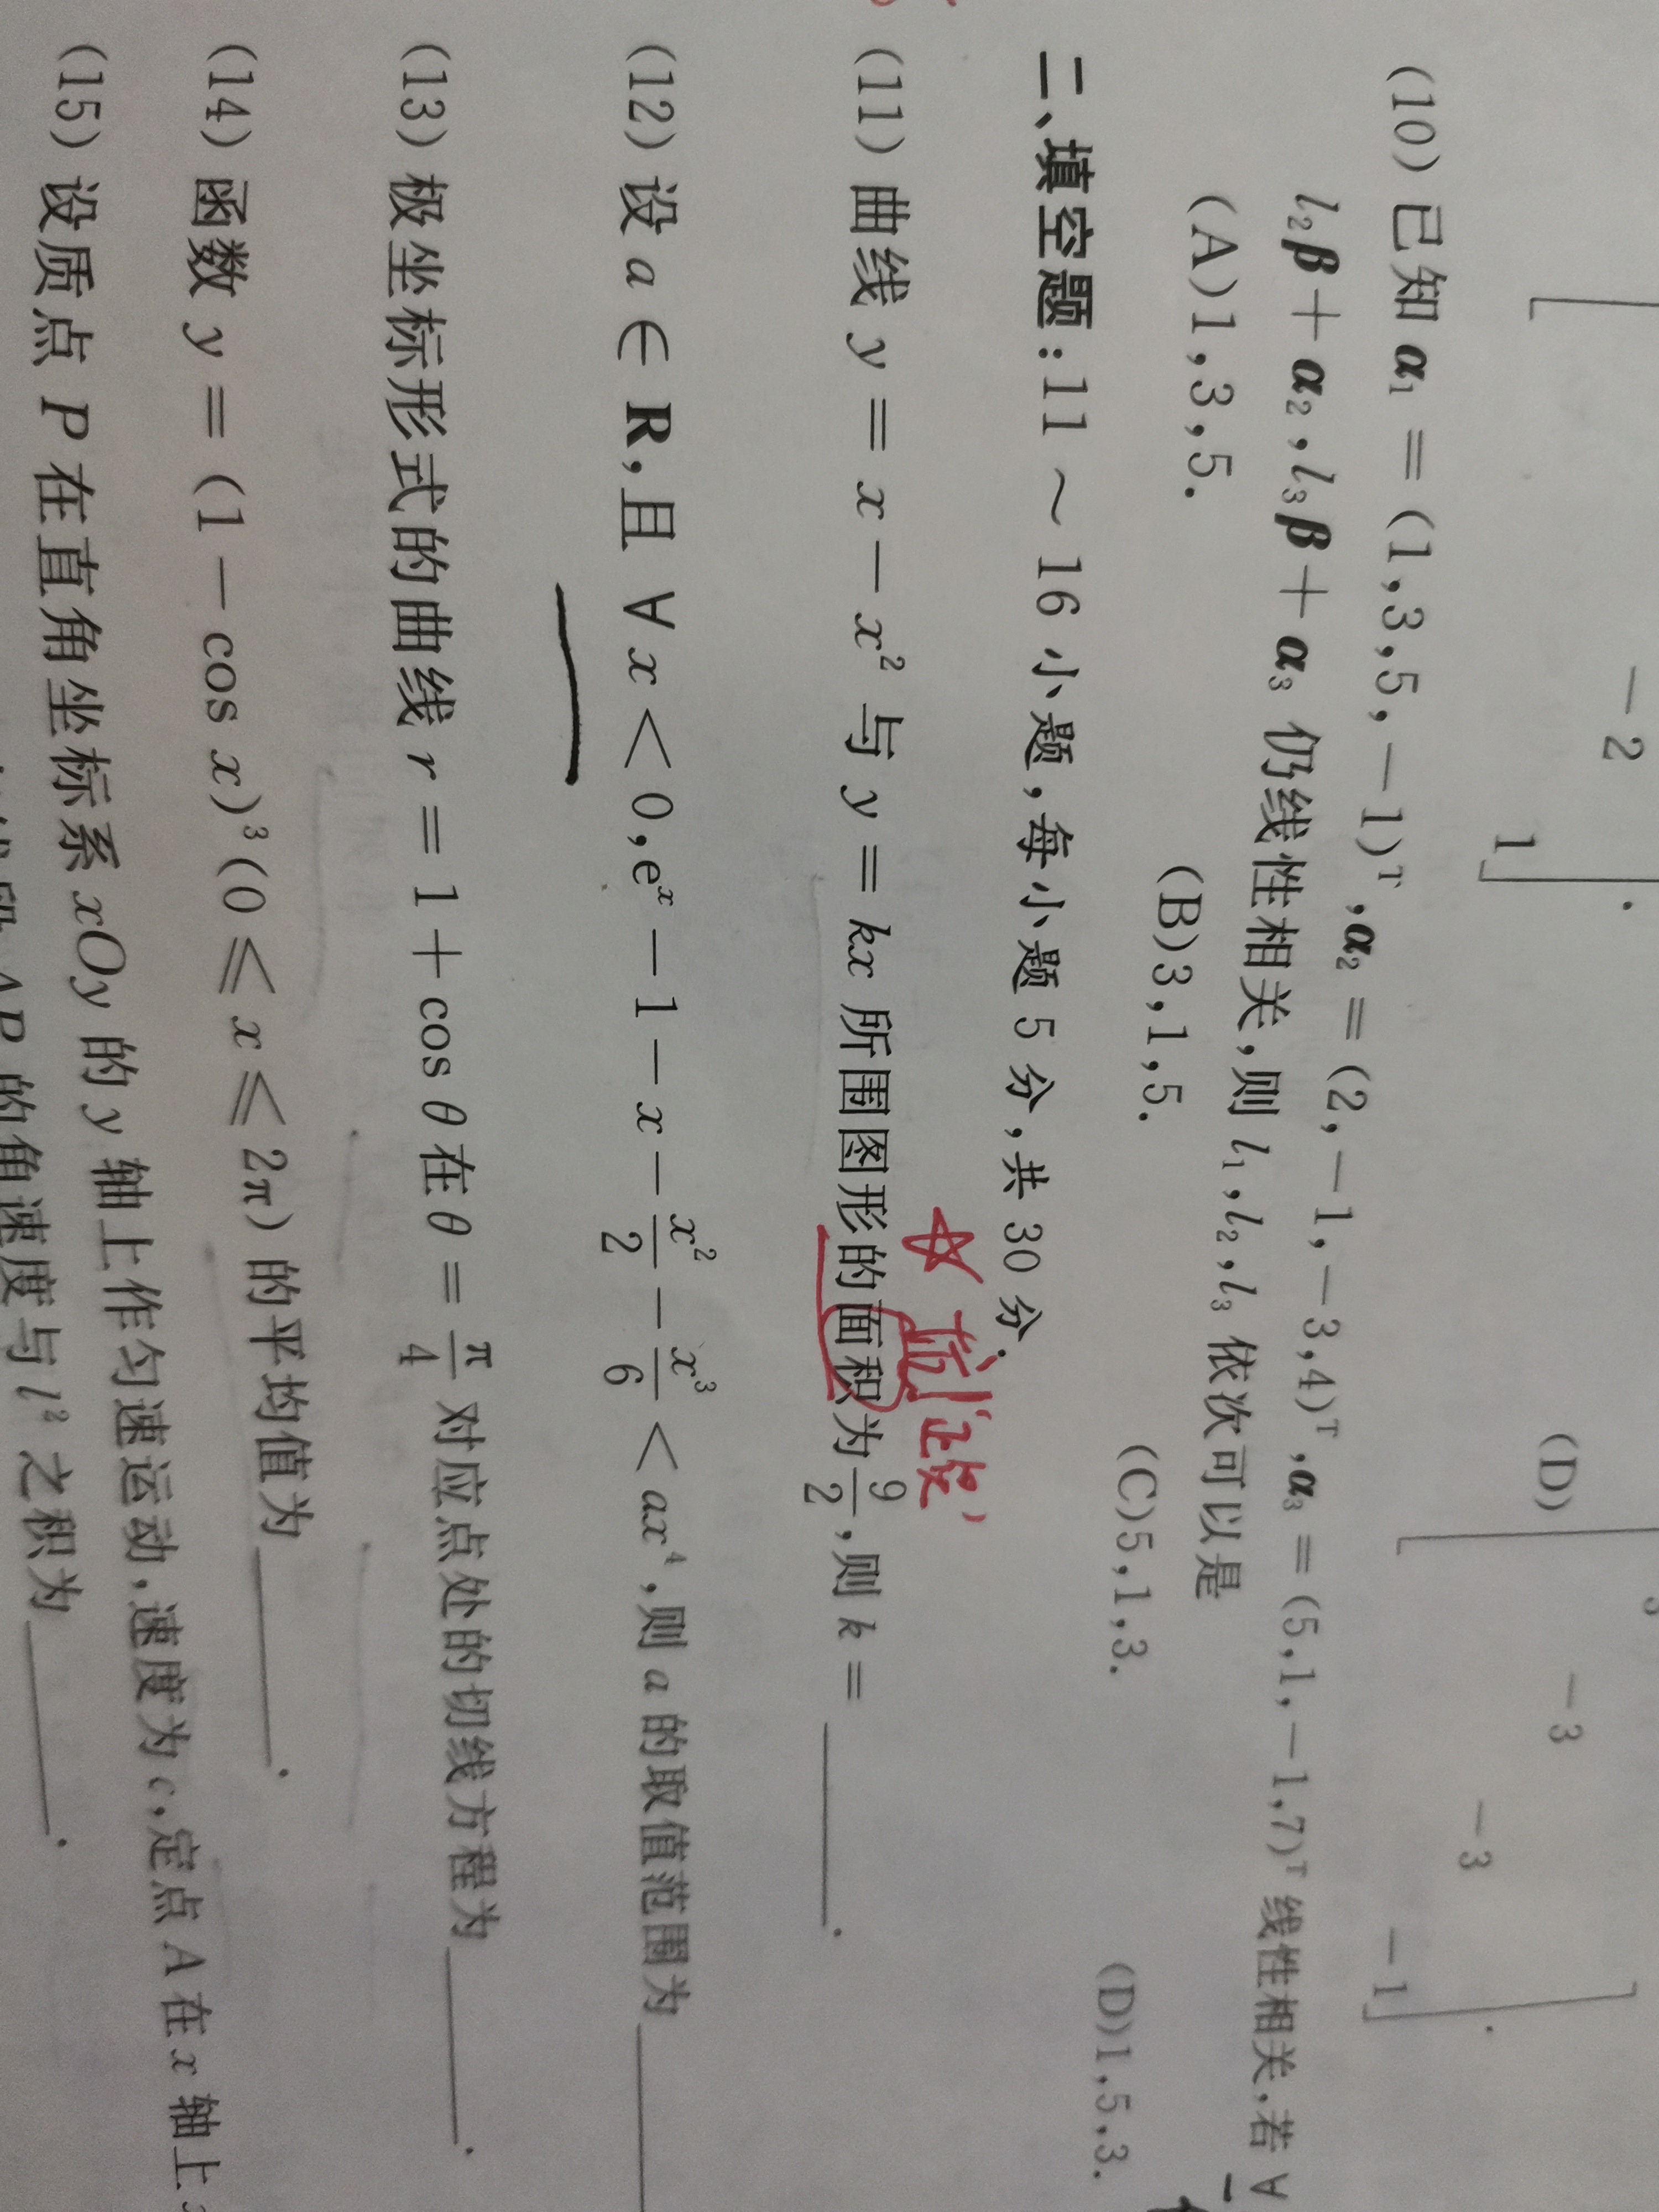 -2
1
.
(D)
-3
-3
-1
.
(10) 已知 α₁ = (1,3,5,-1)ᵀ,α₂ = (2,-1,-3,4)ᵀ,α₃ = (5,1,-1,7)ᵀ 线性相关,若 ∀
l₂β + α₂,l₃β + α₃ 仍线性相关,则 l₁,l₂,l₃ 依次可以是
(A)1,3,5. (B)3,1,5. (C)5,1,3. (D)1,5,3.
二、填空题:11 ~ 16 小题,每小题 5 分,共 30 分.
(11) 曲线 y = x - x² 与 y = kx 所围图形的面积为 9/2,则 k = ______.
(12) 设 a ∈ R,且 ∀ x < 0,eˣ - 1 - x - x²/2 - x³/6 < ax⁴,则 a 的取值范围为______
(13) 极坐标形式的曲线 r = 1 + cos θ 在 θ = π/4 对应点处的切线方程为______.
(14) 函数 y = (1 - cos x)³(0 ≤ x ≤ 2π) 的平均值为______.
(15) 设质点 P 在直角坐标系 xOy 的 y 轴上作匀速运动,速度为 c,定点 A 在 x 轴上
AP 的角速度与 l² 之积为______.